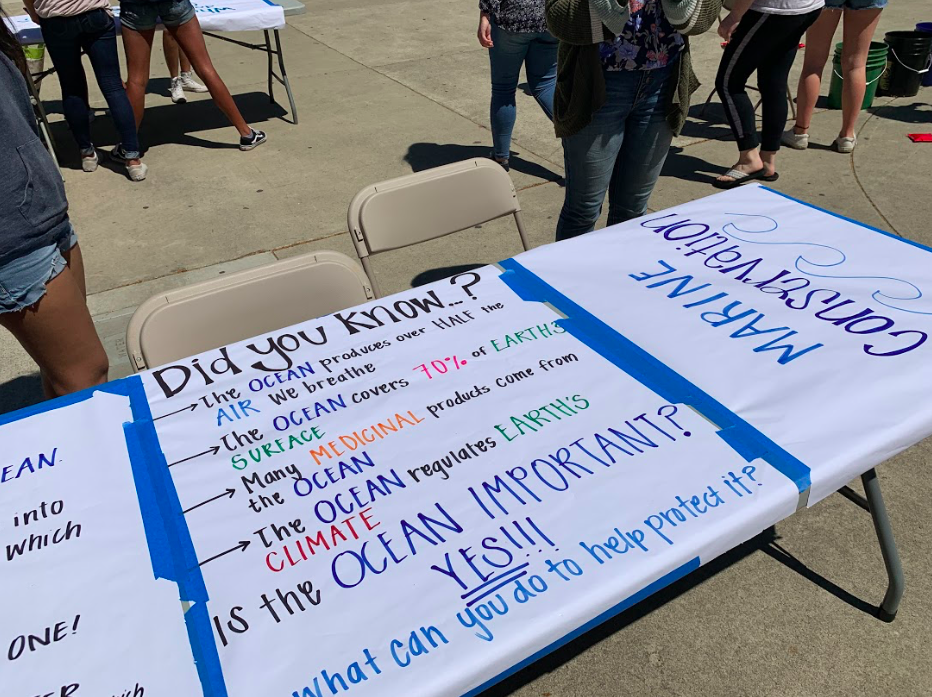 Did you know...?
The OCEAN produces over HALF the
AIR we breathe
The OCEAN covers 70% of EARTH's
SURFACE
Many MEDICINAL products come from
the OCEAN
The OCEAN regulates EARTH's
CLIMATE
Is the OCEAN IMPORTANT?
YES!!!
What can you do to help protect it?
MARINE
Conservation
EAN.
into
which
ONE!